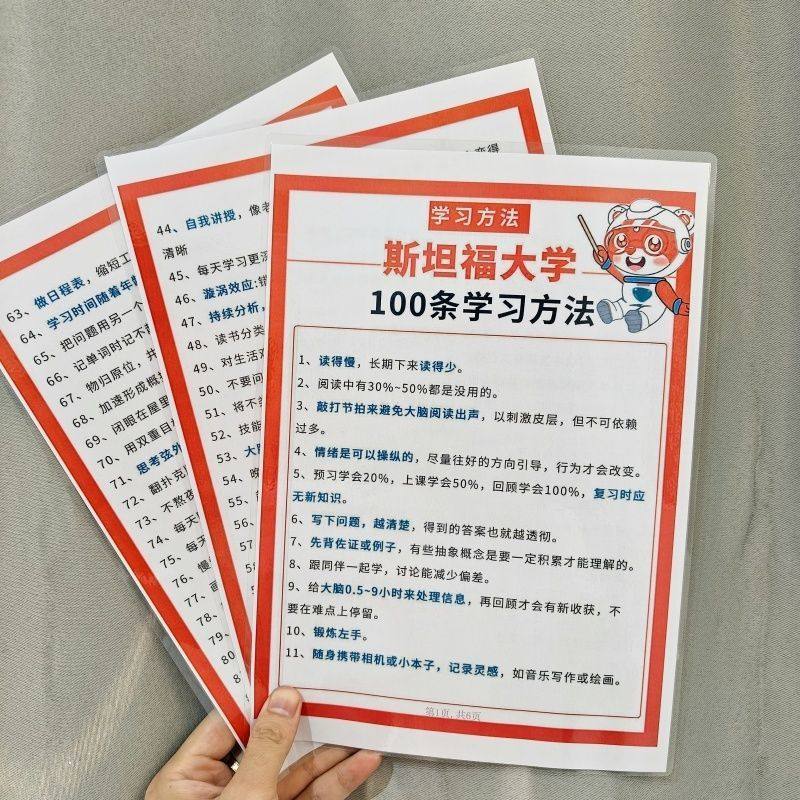 学习方法
斯坦福大学
100条学习方法
1、读得慢，长期下来读得少。
2、阅读中有30%~50%都是没用的。
3、敲打节拍来避免大脑阅读出声，以刺激皮层，但不可依赖
过多。
4、情绪是可以操纵的，尽量往好的方向引导，行为才会改变。
5、预习学会20%，上课学会50%，回顾学会100%，复习时应
无新知识。
6、写下问题，越清楚，得到的答案也就越透彻。
7、先背佐证或例子，有些抽象概念是要一定积累才能理解的。
8、跟同伴一起学，讨论能减少偏差。
9、给大脑0.5~9小时来处理信息，再回顾才会有新收获，不
要在难点上停留。
10、锻炼左手。
11、随身携带相机或小本子，记录灵感，如音乐写作或绘画。
第1页,共6页
44、自我讲授，像老
清晰
45、每天学习更
46、漩涡效应:
47、持续分析，
48、读书分类
49、对生活
50、不要问
51、将不
52、技能
53、大
54、晚
55、
56、
57、
58、
59、
60
61
62
63、做日程表，缩短工
64、学习时间随着年
65、把问题用另一个
66、记单词时记不
67、物归原位，并
68、加速形成概
69、闭眼在屋里
70、用双重目
71、思考弦外
72、翻扑克
73、不熬夜
74、每天
75、每天
76、慢
77、画
78、
79、
80
81
82
变得